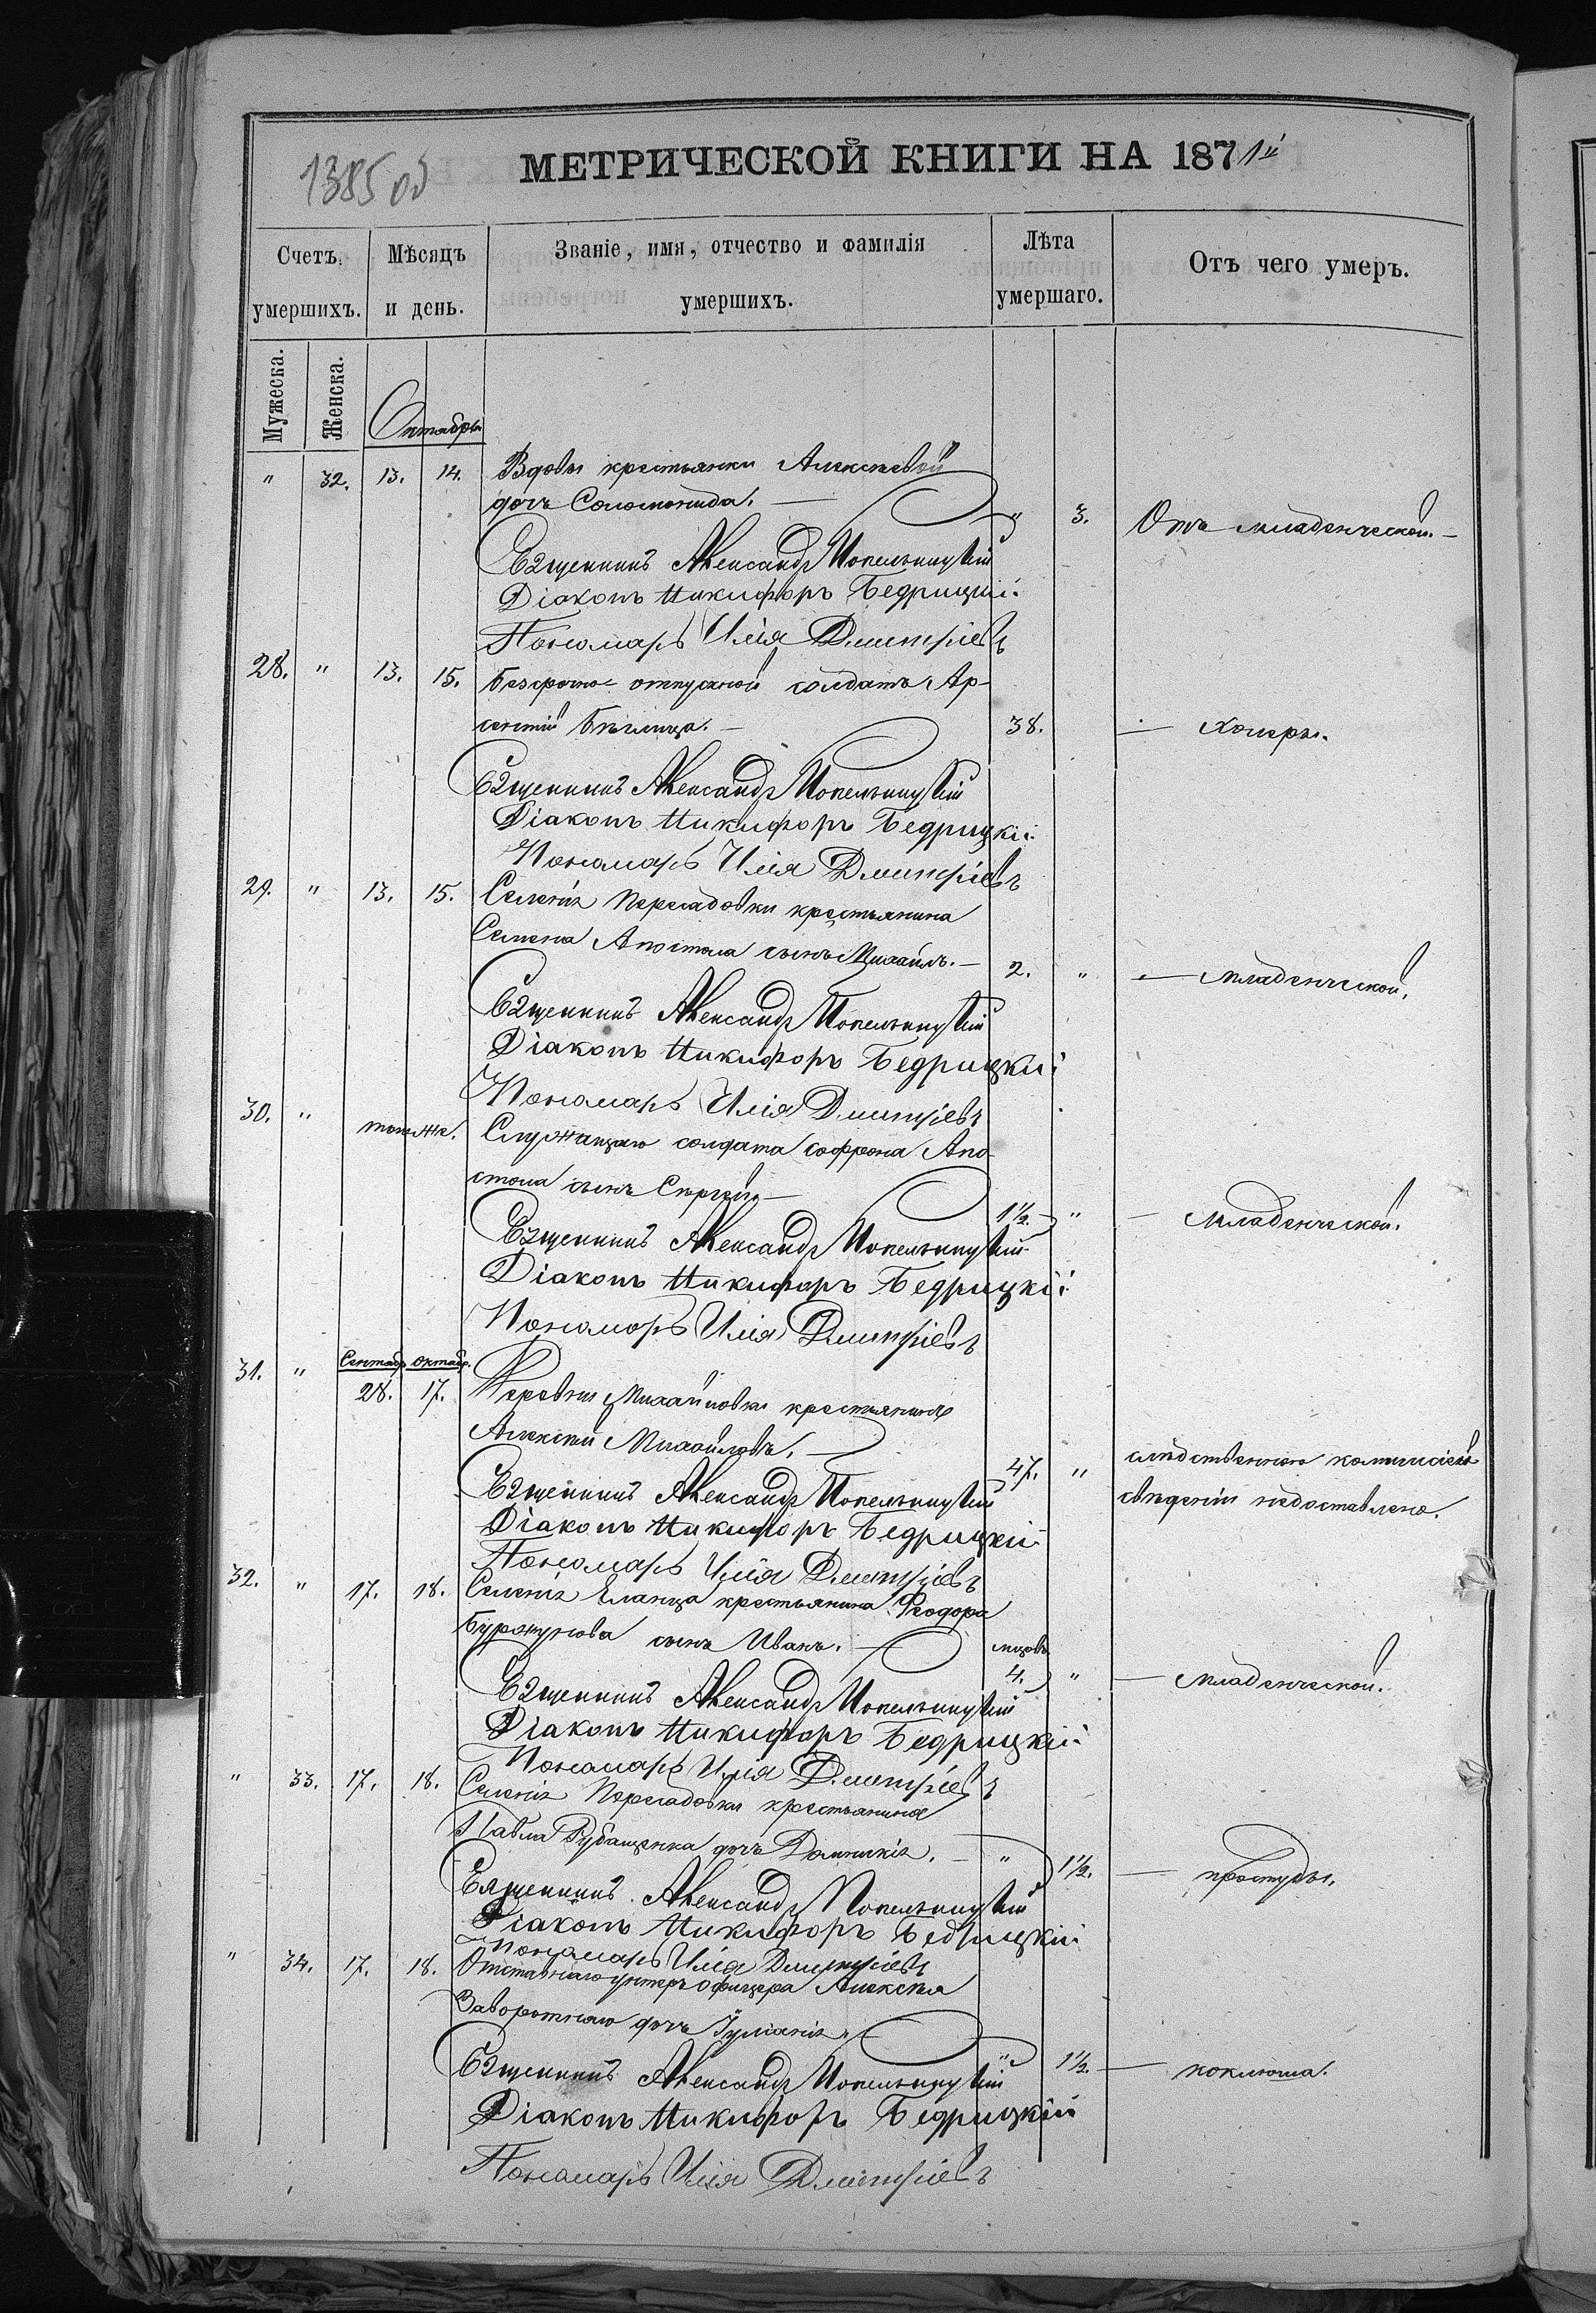 1385 об
МЕТРИЧЕСКОЙ КНИГИ НА 1871й
Счетъ умершихъ.
Мѣсяцъ и день.
Званіе, имя, отчество и фамилія умершихъ.
Лѣта умершаго.
Отъ чего умеръ.
Мужеска.
Женска.
Октября
" 32. 13. 14. Вдовы крестьянки Алексѣевой
дочь Соломонида. — " 3. Отъ младенческой. —
Священникъ Александръ
Діаконъ Никифоръ Бедрицкій
Пономарь Илія Дмитріевъ
28. " 13. 15. Безсрочно отпускной солдатъ Ар-
сентій — 38. — холеры.
Священникъ Александръ
Діаконъ Никифоръ Бедрицкій
Пономарь Илія Дмитріевъ
29. " 13. 15. Селенія Пересадовки крестьянина
Семена Апостола сынъ Михаилъ. — 2. " — младенческой.
Священникъ Александръ
Діаконъ Никифоръ Бедрицкій
Пономарь Илія Дмитріевъ
30. " тогоже. Служащаго солдата Софрона Апо-
стола сынъ Сергѣй. — 1½. " — младенческой.
Священникъ Александръ
Діаконъ Никифоръ Бедрицкій
Пономарь Илія Дмитріевъ
31. " Сентяб. Октяб.
28. 17. Деревни Михайловки крестьянинъ
Алексѣй Михайловъ. — 47. " слѣдственною коммисіею
свѣденіи недоставлено.
Священникъ Александръ
Діаконъ Никифоръ Бедрицкій
Пономарь Илія Дмитріевъ
32. " 17. 18. Селенія Еланца крестьянина Феодора
сынъ Иванъ. — мцовъ
4. " — младенческой.
Священникъ Александръ
Діаконъ Никифоръ Бедрицкій
Пономарь Илія Дмитріевъ
" 33. 17. 18. Селенія Пересадовки крестьянина
Павла Рубащенка дочь Домникія. — " 1½. — простуды.
Священникъ Александръ
Діаконъ Никифоръ Бедрицкій
Пономарь Илія Дмитріевъ
" 34. 17. 18. Отставнаго унтеръ офицера Алексѣя
Заворотнаго дочь Іуліанія. — " 1½. — коклюша.
Священникъ Александръ
Діаконъ Никифоръ Бедрицкій
Пономарь Илія Дмитріевъ